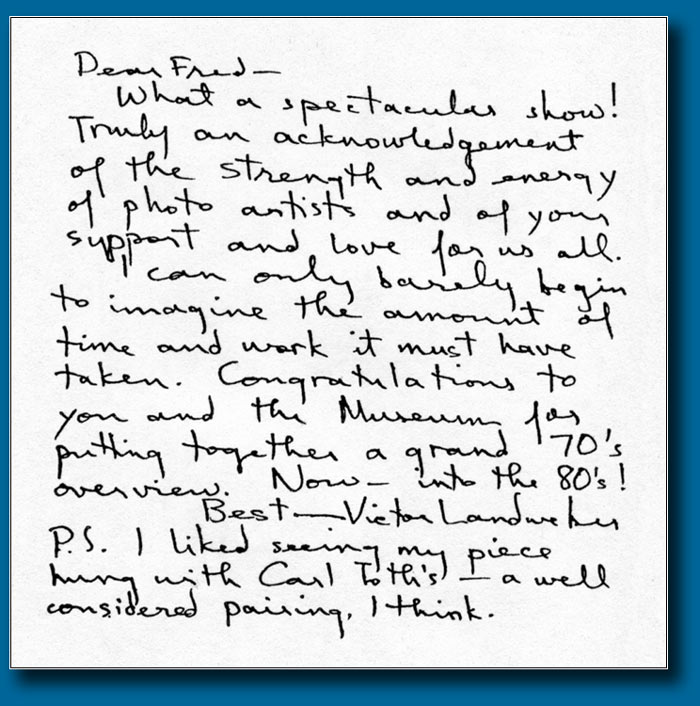 Dear Fred—
What a spectacular show!
Truly an acknowledgement
of the strength and energy
of photo artists and of your
support and love for us all.
I can only barely begin
to imagine the amount of
time and work it must have
taken. Congratulations to
you and the Museum for
putting together a grand '70's
overview. Now— into the 80's!
Best—Victor Landweber
P.S. I liked seeing my piece
hung with Carl Toth's — a well
considered pairing, I think.